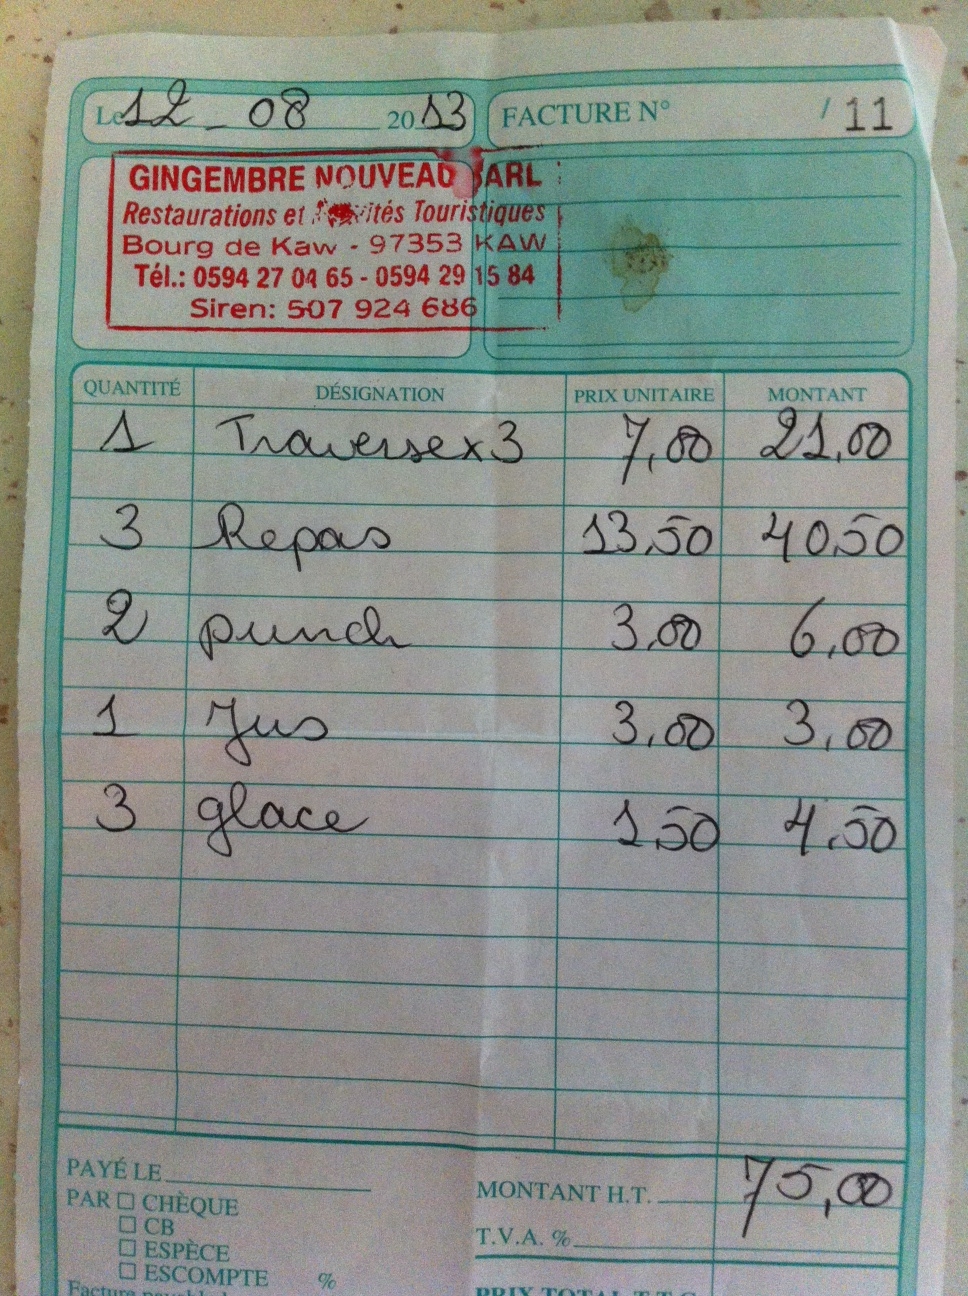 Le 12 - 08 2013
FACTURE N° / 11
GINGEMBRE NOUVEAU SARL
Restaurations et Touristiques
Bourg de Kaw - 97353 KAW
Tél.: 0594 27 04 65 - 0594 29 15 84
Siren: 507 924 686
QUANTITÉ DÉSIGNATION PRIX UNITAIRE MONTANT
1 Traversex3 7,00 21,00
3 Repas 13,50 40,50
2 punch 3,00 6,00
1 Jus 3,00 3,00
3 glace 1,50 4,50
PAYÉ LE
PAR CHÈQUE
CB
ESPÈCE
ESCOMPTE %
MONTANT H.T. 75,00
T.V.A. %
PRIX TOTAL T.T.C.